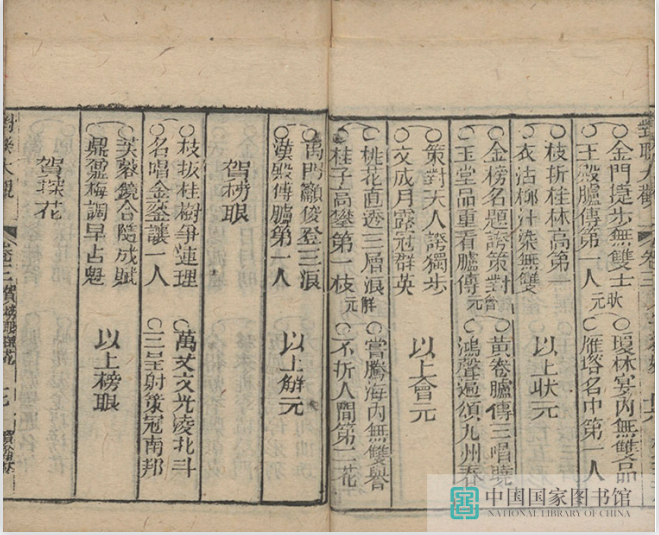 對聯大觀 卷三
○金門提步無雙士 狀 ○瓊林宴内無雙品
○玉殿臚傳第一人 元 ○雁塔名中第一人
○枝折桂林高第一
○衣沾柳汁染無雙 以上狀元
○金榜名題誇策對 會 ○黃卷臚傳三唱曉
○玉堂品重看臚傳 元 ○鴻聲遍頌九州春
○策對天人誇獨步
○文成月露冠群英 以上會元
○桃花直透三層浪 解 ○嘗騰海内無雙譽
○桂子高攀第一枝 元 ○不折人間第二花
○禹門躍俊登三浪
○漢殿傳臚第一人 以上解元
賀榜眼
○枝拔桂樹爭蓮理 ○萬丈文光凌北斗
○名唱金鑾讓一人 ○三呈射策冠南邦
○芙蓉鏡合隨成賦
○鼎鼐梅調早占魁 以上榜眼
賀探花
對聯大觀 卷三 賀榜眼探花
中国国家图书馆
NATIONAL LIBRARY OF CHINA